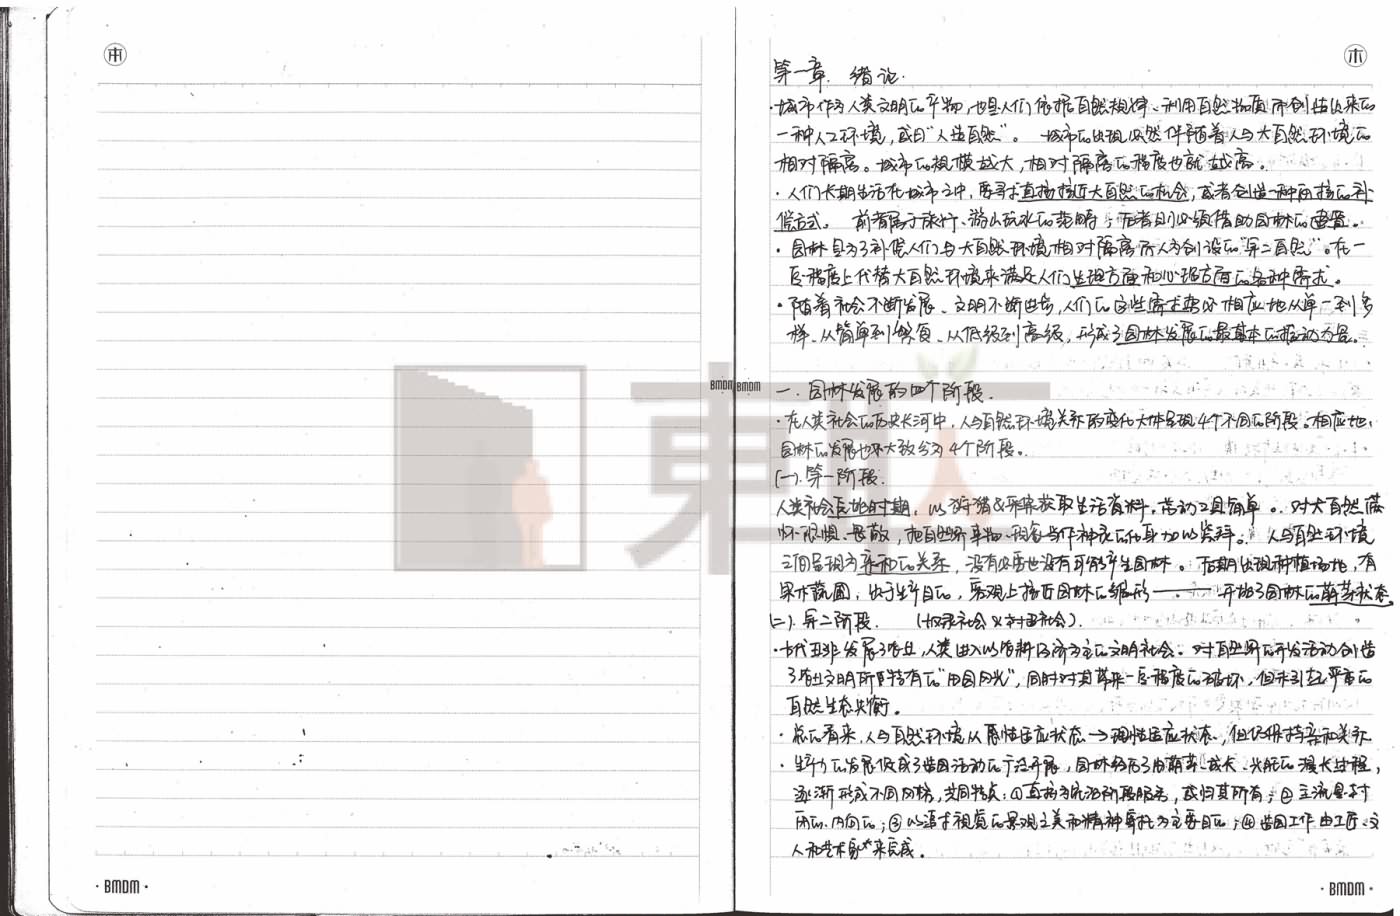 第一章. 绪论.
·城市作为人类文明的产物,也是人们依据自然规律、利用自然物质而创造出来的
一种人工环境,或曰"人造自然"。 城市的出现必然伴随着人与大自然环境的
相对隔离。城市的规模越大,相对隔离的程度也就越高。
·人们长期生活在城市之中,要寻求直接接近大自然的机会,或者创造一种间接的补
偿方式。 前者属于旅行、游山玩水的范畴;后者则必须借助园林的建置。
·园林是为了补偿人们与大自然环境相对隔离而人为创设的"第二自然"。在一
定程度上代替大自然环境来满足人们生理方面和心理方面的各种需求。
·随着社会不断发展、文明不断进步,人们的这些需求势必相应地从单一到多
样、从简单到繁复、从低级到高级,形成了园林发展的最基本的推动力量。
一. 园林发展的四个阶段.
·在人类社会的历史长河中,人与自然环境关系的变化大体呈现4个不同的阶段。相应地,
园林的发展也大致分为4个阶段。
(一).第一阶段.
人类社会原始时期,以狩猎&采集获取生活资料,劳动工具简单。 对大自然满
怀恐惧、畏敬,把自然界事物、现象当作神灵的化身加以崇拜。 人与自然环境
之间呈现为亲和的关系,没有必要也没有可能产生园林。 后期出现种植场地,有
果木蔬圃,出于生产目的,客观上接近园林的雏形—— 开始了园林的萌芽状态.
(二).第二阶段. (奴隶社会&封建社会).
·古代亚非发展了农业,人类进入以农耕经济为主的文明社会。对自然界的开发活动创造
了农业文明所特有的"田园风光",同时对其带来一定程度的破坏,但未引起严重的
自然生态失衡。
·总的看来,人与自然环境从感性适应状态→理性适应状态,但仍保持亲和关系.
·生产力的发展促成了造园活动的广泛开展,园林经历了由萌芽、成长、兴旺的漫长过程,
逐渐形成不同风格,共同特点:①直接为统治阶级服务,或归其所有;②主流是封
闭的、内向的;③以追求视觉的景观之美和精神寄托为主要目的;④造园工作由工匠、文
人和艺术家来完成。
BMDM BMDM
·BMDM·
·BMDM·
東